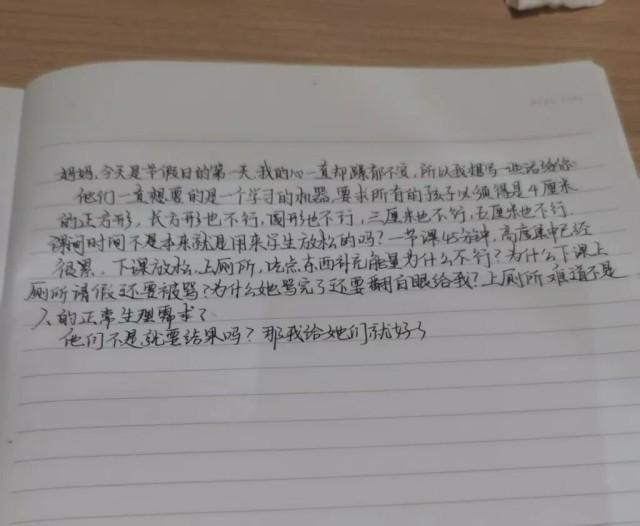 妈妈,今天是节假日的第一天,我的心一直却踌郁不安,所以我想写一些话给你
他们一直想要的是一个学习的机器,要求所有的孩子必须得是4厘米
的正方形,长方形也不行,圆形也不行,三厘米也不行,五厘米也不行.
课间时间不是本来就是用来学生放松的吗?一节课45分钟,高度集中已经
很累,下课放松,上厕所,吃点东西补充能量为什么不行?为什么下课上
厕所请假还要被骂?为什么她骂完了还要翻白眼给我?上厕所难道不是
人的正常生理需求?
他们不是就要结果吗?那我给她们就好了